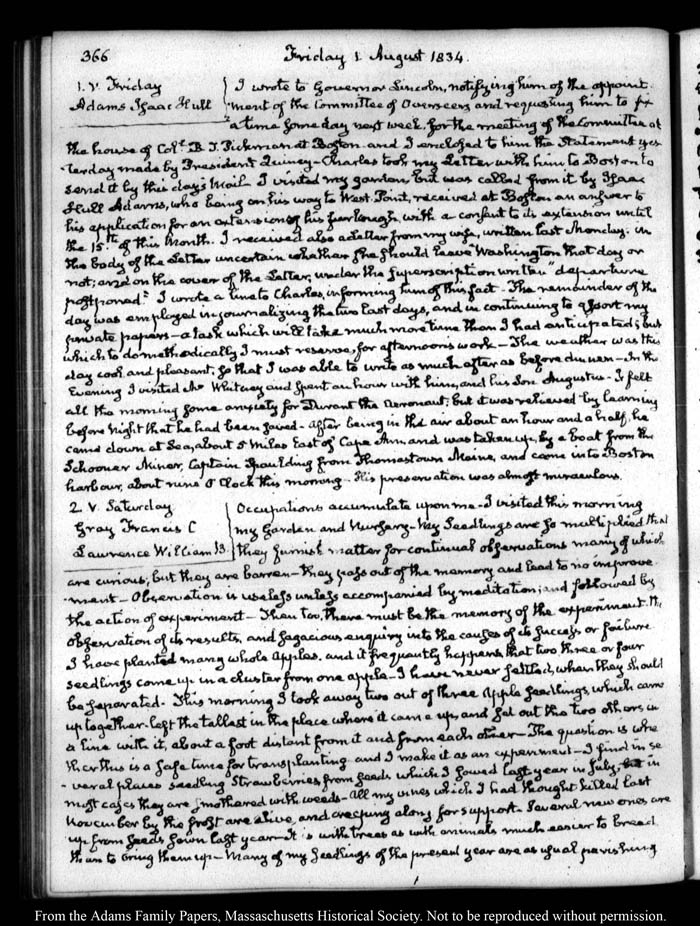 366
Friday 1 August 1834.
1. V. Friday
Adams Isaac Hull
I wrote to Governor Lincoln, notifying him of the appoint-
ment of the Committee of Overseers and requesting him to fix
a time some day next week, for the meeting of the Committee at
the house of Colt. B. T. Pickman at Boston and I enclosed to him the Statement yes-
terday made by President Quincy – Charles took my Letter with him to Boston to
send it by this day's Mail. I visited my garden but was called from it by Isaac
Hull Adams, who being on his way to West-Point, received at Boston an answer to
his application for an extension of his furlough, with a consent to its extension until
the 15th of this Month. I received also a Letter from my wife, written last Monday: in
the body of the Letter uncertain whether she should leave Washington that day or
not; and on the cover of the Letter, under the superscription written "departure
postponed." I wrote a line to Charles, informing him of this fact – The remainder of the
day was employed in journalizing the two last days, and in continuing to assort my
private papers – a task which will take much more time than I had anticipated; but
which to do methodically I must reserve, for afternoon's work – The weather was this
day cool and pleasant; so that I was able to write as much after as before dinner – In the
Evening I visited Mr Whitney and spent an hour with him, and his Son Augustus – I felt
all the morning some anxiety for Durant the Aeronaut; but it was relieved by learning
before Night that he had been saved – After being in the air about an hour and a half, he
came down at Sea, about 5 miles East of Cape Ann, and was taken up, by a boat from the
Schooner Miner, Captain Spaulding from Thomastown Maine, and came into Boston
harbour, about nine O'Clock this morning – His preservation was almost miraculous.
2. V. Saturday
Gray Francis C
Lawrence William B.
Occupations accumulate upon me – I visited this morning
my Garden and Nursery – My Seedlings are so multiplied that
they furnish matter for continual observations many of which
are curious; but they are barren – they pass out of the memory and lead to no improve-
ment – Observation is useless unless accompanied by meditation; and followed by
the action of experiment – Then too, there must be the memory of the experiment. the
observation of its results, and sagacious enquiry into the causes of its success or failure
I have planted many whole apples. and it frequently happens that two three or four
seedlings come up in a cluster from one apple – I have never settled, when they should
be separated. This morning I took away two out of three apple seedlings, which came
up together – left the tallest in the place where it came up, and set out the two others in
a line with it, about a foot distant from it and from each other – The question is whe-
ther this is a safe time for transplanting and I make it as an experiment – I find in se-
veral places seedling Strawberries from seeds which I sowed last year in July, in
most cases they are smothered with weeds – All my vines which I had thought killed last
November by the frost are alive, and creeping along for support. Several new ones are
up from seeds sown last year – It is with trees as with animals much easier to breed
than to bring them up – Many of my Seedlings of the present year are as usual perishing
From the Adams Family Papers, Massachusetts Historical Society. Not to be reproduced without permission.